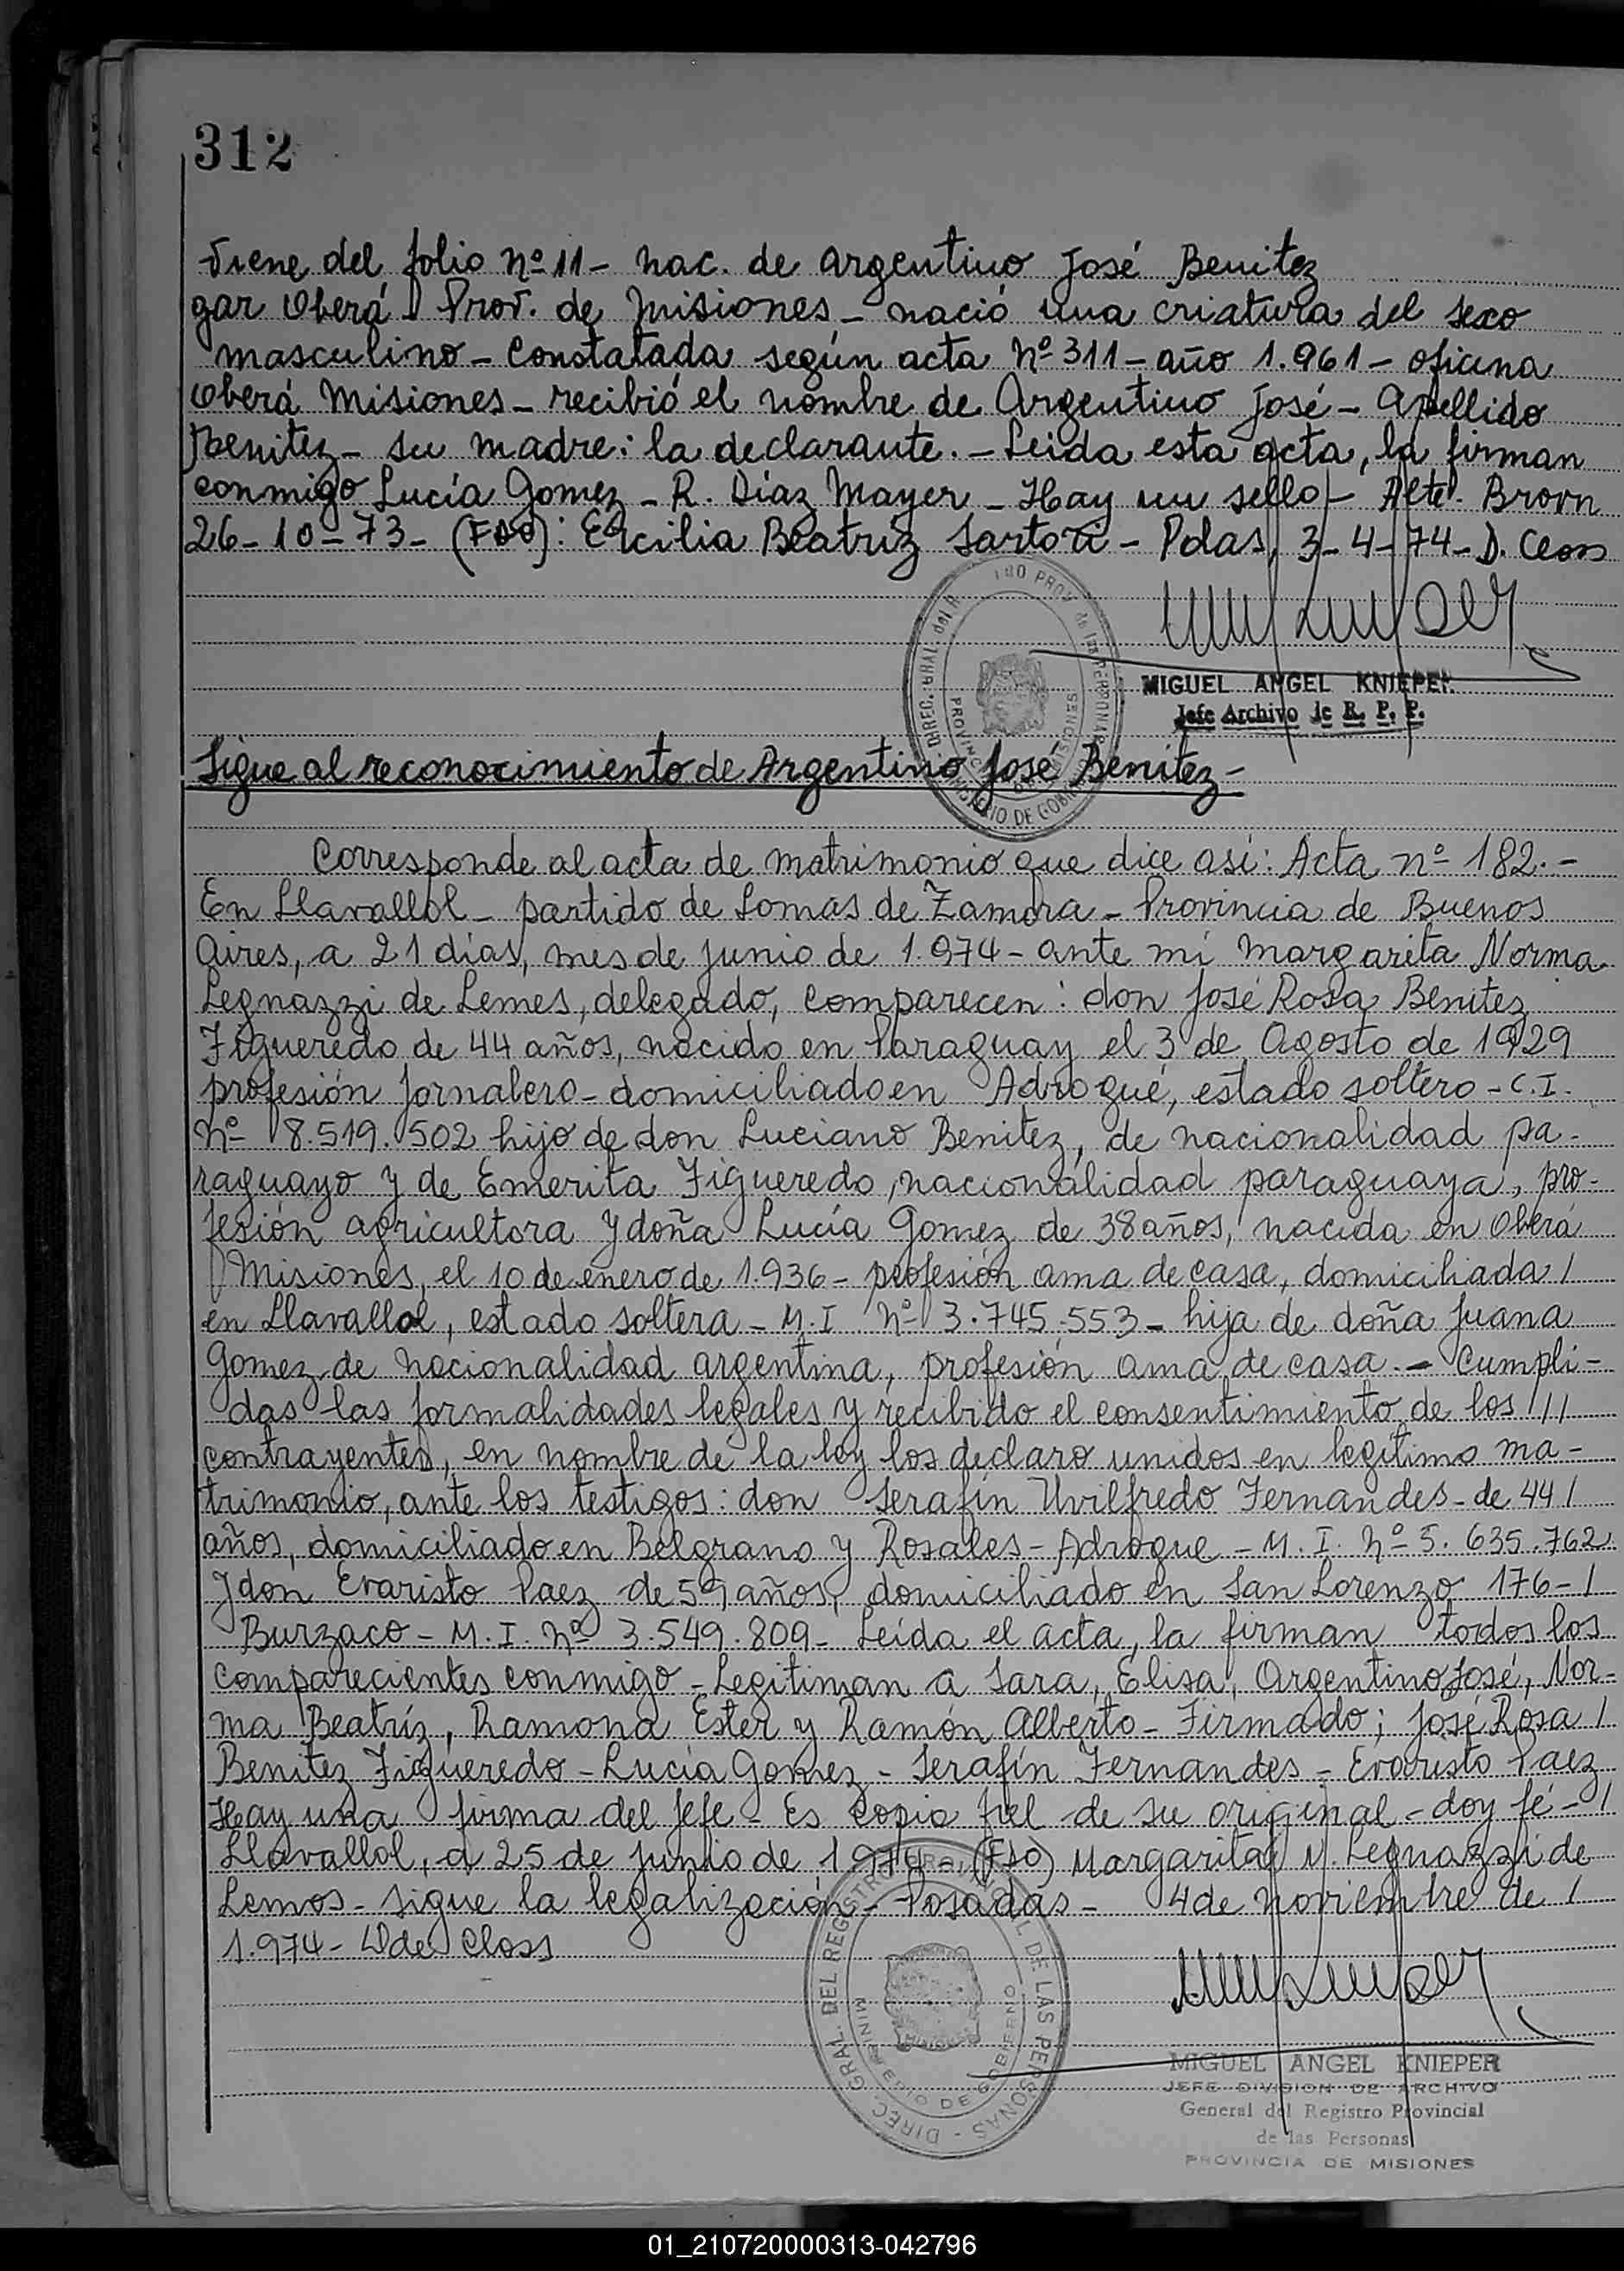 312
Viene del folio nº 11- nac. de Argentino José Benitez
gar Oberá Prov. de Misiones - nació una criatura del sexo
masculino - Constatada según acta nº 311 - año 1.961 - oficina
Oberá Misiones - recibió el nombre de Argentino José - Apellido
Benitez - su madre: la declarante. - Leida esta acta, la firman
conmigo Lucía Gomez - R. Díaz Mayer - Hay un sello - Alte. Brown
26-10-73- (Fdo): Ercilia Beatriz Sartori - Pdas, 3-4-74- D. Closs
MIGUEL ANGEL KNIEPER
Jefe Archivo de R. P. P.
Sigue al reconocimiento de Argentino José Benitez -
Corresponde al acta de matrimonio que dice asi: Acta nº 182. -
En Llavallol - partido de Lomas de Zamora - Provincia de Buenos
Aires, a 21 días, mes de junio de 1.974 - ante mí Margarita Norma
Legnazzi de Lemes, delegado, comparecen: don José Rosa Benitez
Figueredo de 44 años, nacido en Paraguay el 3 de Agosto de 1929
profesión jornalero - domiciliado en Adrogué, estado soltero - C.I.
Nº 8.519.502 hijo de don Luciano Benitez, de nacionalidad pa-
raguayo y de Emerita Figueredo, nacionalidad paraguaya, pro-
fesión agricultora y doña Lucía Gomez de 38 años, nacida en Oberá
Misiones, el 10 de enero de 1.936 - profesión ama de casa, domiciliada /
en Llavallol, estado soltera - M.I. Nº 3.745.553 - hija de doña Juana
Gomez de nacionalidad argentina, profesión ama de casa. - Cumpli-
das las formalidades legales y recibido el consentimiento de los ///
contrayentes, en nombre de la ley los declaro unidos en legítimo ma-
trimonio, ante los testigos: don Serafín Uvilfredo Fernandes - de 44 /
años, domiciliado en Belgrano y Rosales - Adrogue - M.I. Nº 5.635.762
y don Evaristo Paez de 59 años, domiciliado en San Lorenzo 176 - /
Burzaco - M.I. Nº 3.549.809 - Leída el acta, la firman todos los
comparecientes conmigo - Legitiman a Sara, Elisa, Argentino José, Nor-
ma Beatríz, Ramona Ester y Ramón Alberto - Firmado; José Rosa /
Benitez Figueredo - Lucía Gomez - Serafín Fernandes - Evaristo Paez
Hay una firma del Jefe - Es copia fiel de su original - doy fé - /
Llavallol, a 25 de junio de 1974 - (Fdo) Margarita N. Legnazzi de
Lemos - Sigue la legalización - Posadas - 4 de noviembre de /
1.974 - D de Closs
DIREC. GRAL. DEL REGISTRO PROVINCIAL DE LAS PERSONAS
MINISTERIO DE GOBIERNO
MISIONES
MIGUEL ANGEL KNIEPER
JEFE DIVISION DE ARCHIVO
General del Registro Provincial
de las Personas
PROVINCIA DE MISIONES
01_210720000313-042796